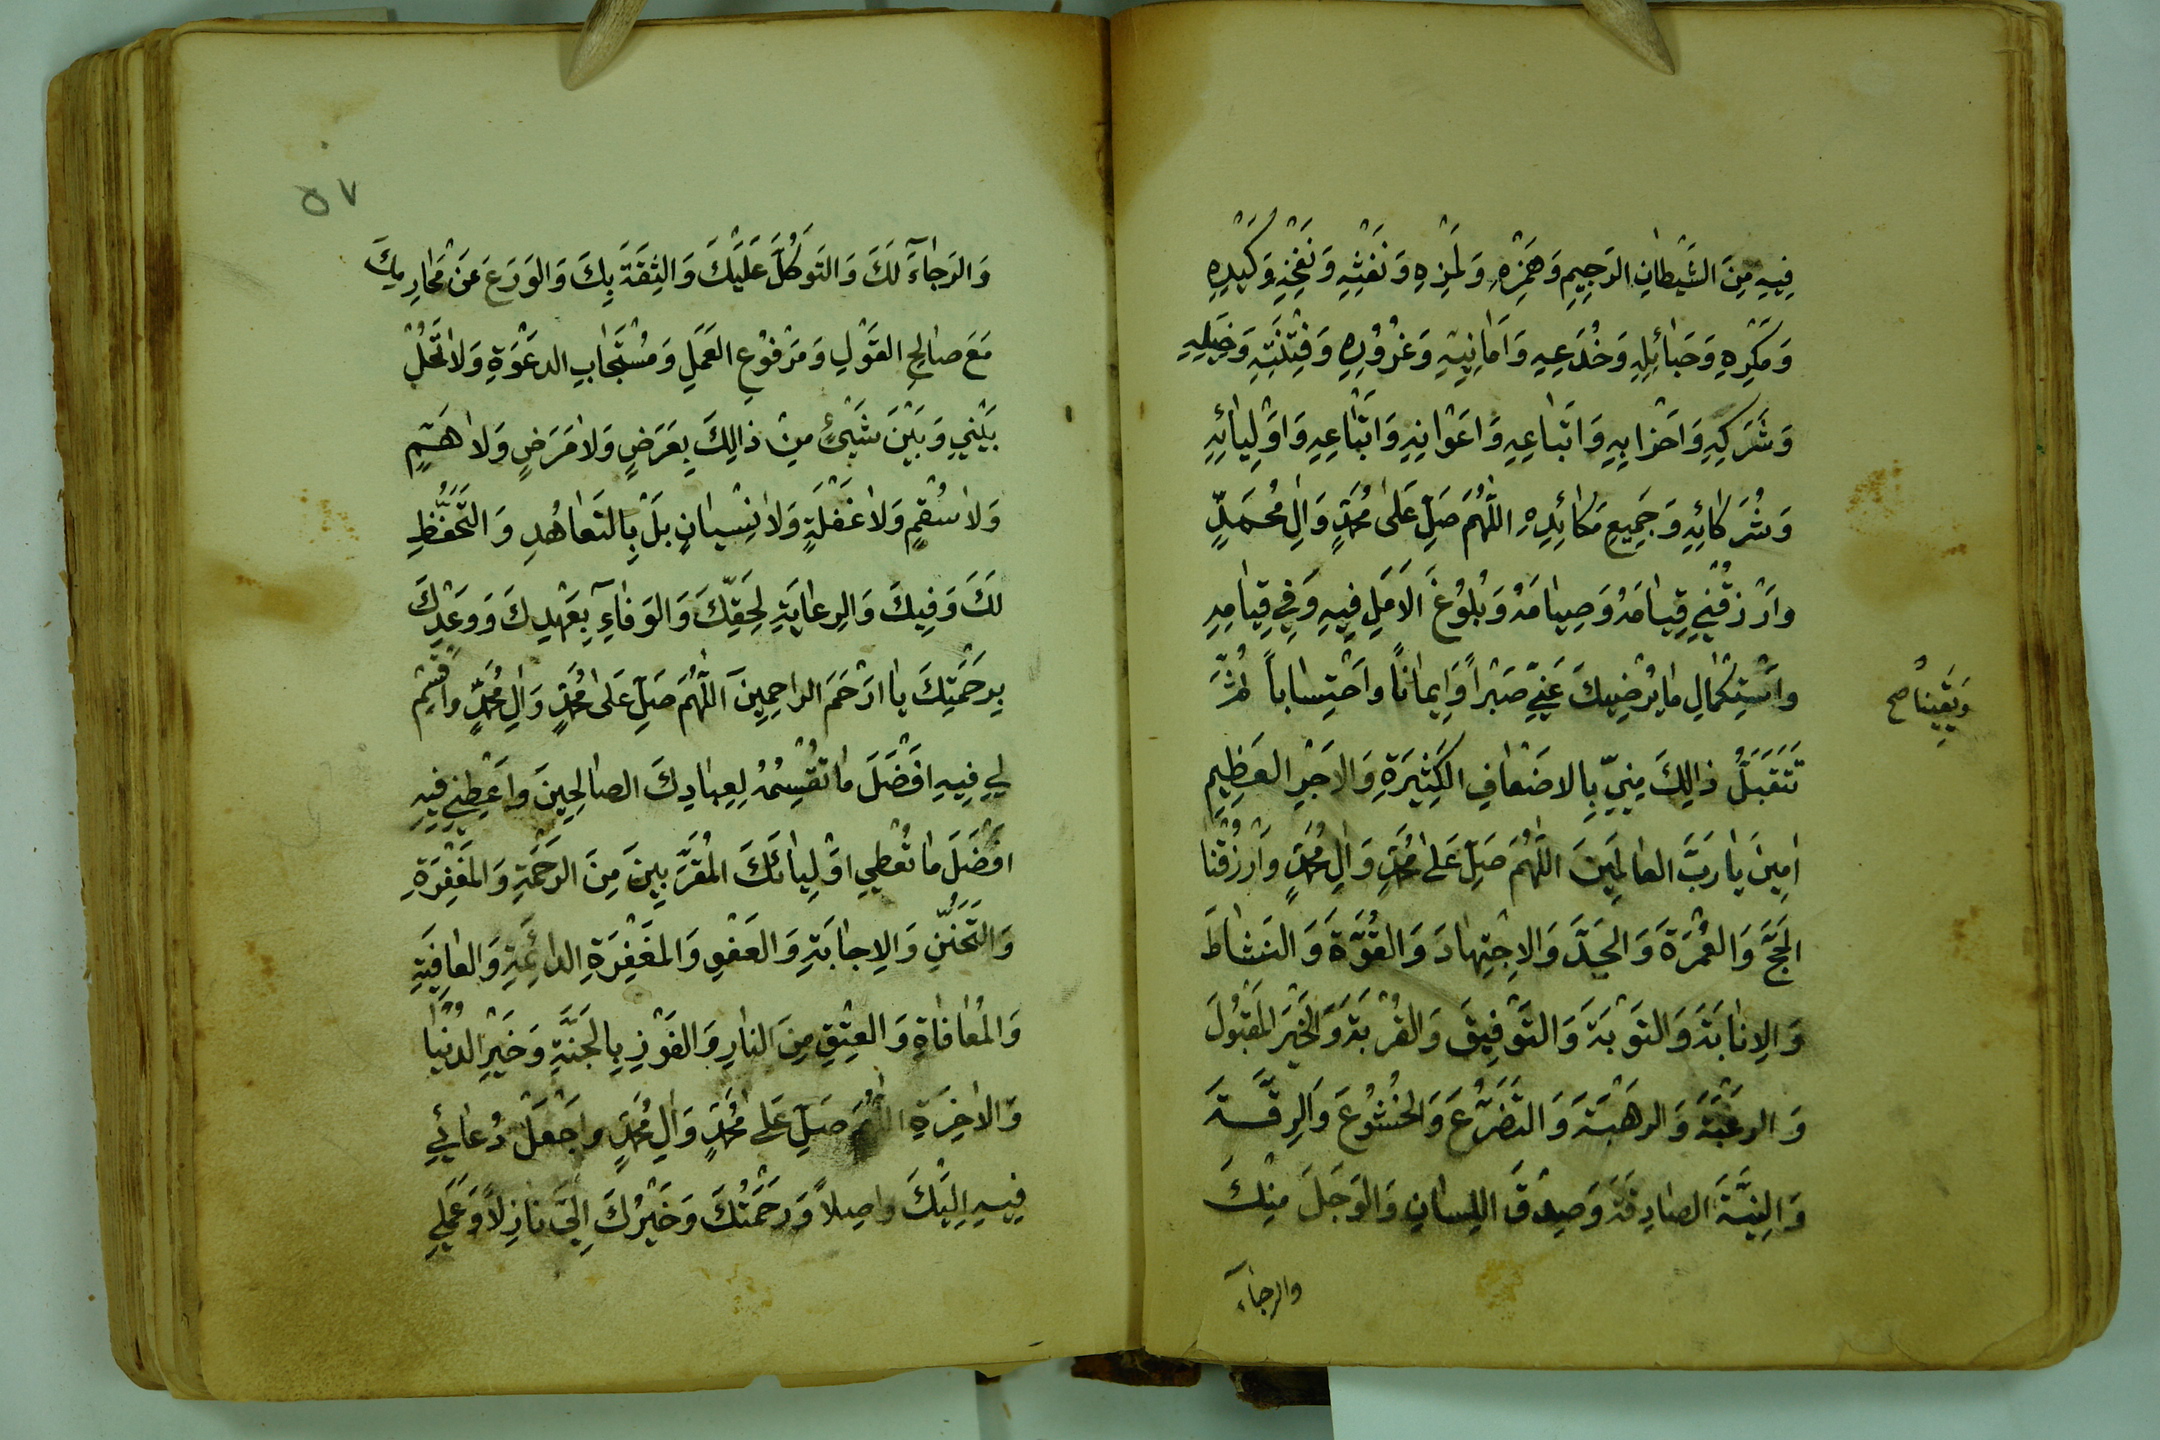 فِيهِ مِنَ الشَّيْطَانِ الرَجِيمِ وَهَمْزِهِ وَلَمْزِهِ وَنَفْثِهِ وَنَفْخِهِ وَكَيْدِهِ
وَمَكْرِهِ وَحَبَائِلِهِ وَخُدَعِهِ وَاَمَانِيِّهِ وَغُرُورِهِ وَفِتْنَتِهِ وَخَيْلِهِ
وَشَرَكِهِ وَاَحْزَابِهِ وَاَتْبَاعِهِ وَاَعْوَانِهِ وَاَتْبَاعِهِ وَاَوْلِيَائِهِ
وَشُرَكَائِهِ وَجَمِيعِ مَكَائِدِهِ اللّٰهُمَ صَلِّ عَلىٰ مُحَمَّدٍ وَاٰلِ مُحَمَّدٍ
وارْزُقْنِي قِيَامَهُ وَصِيَامَهُ وَبُلُوغَ الاَمَلِ فِيهِ وَفِي قِيَامِهِ
واسْتِكْمَالِ مَا يُرْضِيكَ عَنِّي صَبْراً وَاِيمَاناً واحْتِسَاباً ثُمَّ
وَيَقِيناً صح
تَتَقَبَّلُ ذَالِكَ مِنِيّ بِالاضْعَافِ الكَثِيرَةِ وَالاَجْرِ العَظِيمِ
اٰمِينَ يَا رَبَّ العَالَمِينَ اللّٰهُمَ صَلِّ عَلىٰ مُحَمَّدٍ وَاٰلِ مُحَمَّدٍ وَارْزُقْنَا
الحَجَّ وَالعُمْرَةَ وَالجِدَّ وَالاِجْتِهَادَ وَالقُوَّةَ وَالنَشَاطَ
وَالاِنَابَةَ وَالتَوْبَةَ وَالتَّوْفِيقَ وَالقُرْبَةَ وَالخَيْرَ المَقْبُولَ
وَالرغْبَةَ وَالرهْبَةَ وَالتَضَرُّعَ وَالخُشُوعَ وَالرِقَّةَ
وَالنِيَّةَ الصَادِقَةَ وَصِدْقَ اللِسَانِ وَالوَجَلَ مِنْكَ
والرجاۤء
٥٧
وَالرَجَاۤءَ لَكَ وَالتَوَكُّلَ عَلَيْكَ وَالثِقَةَ بِكَ وَالوَرَعَ عَنْ مَحَارِمِكَ
مَعَ صَالِحِ القَوْلِ وَمَرْفُوعِ العَمَلِ وَمُسْتَجَابِ الدعْوَةِ وَلاَ تَحُلْ
بَيْنِي وَبَيْنَ شَيْئٍ مِنْ ذَالِكَ بِعَرَضٍ وَلاَ مَرَضٍ وَلاَ هَمٍّ
وَلاَ سُقْمٍ وَلاَ غَفْلَةٍ وَلاَ نِسْيَانٍ بَلْ بِالتَعَاهُدِ وَالتَّحَفُّظِ
لَكَ وَفِيكَ وَالرِعَايَةِ لِحَقِّكَ وَالوَفَاۤءِ بِعَهْدِكَ وَوَعْدِكَ
بِرَحْمَتِكَ يَا ارْحَمَ الراحِمِينَ اللّٰهُمَ صَلِّ عَلىٰ مُحَمَّدٍ وَاٰلِ مُحَمَّدٍ واقْسِمْ
لِي فِيهِ افْضَلَ مَا تَقْسِمُهُ لِعِبَادِكَ الصَالِحِينَ وَاعْطِنِي فِيهِ
افْضَلَ مَا تُعْطِي اوْلِيَائَكَ المُقَرَّبِينَ مِنَ الرَحْمَةِ وَالمَغْفِرَةِ
وَالتَحَنُّنِ وَالاِجَابَةِ وَالعَفْوِ وَالمَغْفِرَةِ الدَائِمَةِ وَالعَافِيَةِ
وَالمُعَافَاةِ وَالعِتْقِ مِنَ النَارِ وَالفَوْزِ بِالجَنَّةِ وَخَيْرِ الدُنْيَا
وَالاٰخِرَةِ اللّٰهُمَ صَلِّ عَلىٰ مُحَمَّدٍ وَاٰلِ مُحَمَّدٍ واجْعَلْ دُعَائِي
فِيهِ اِلَيْكَ واصِلاً وَرَحْمَتُكَ وَخَيْرُكَ اِلَيَّ نَازِلاً وَعَمَلِي